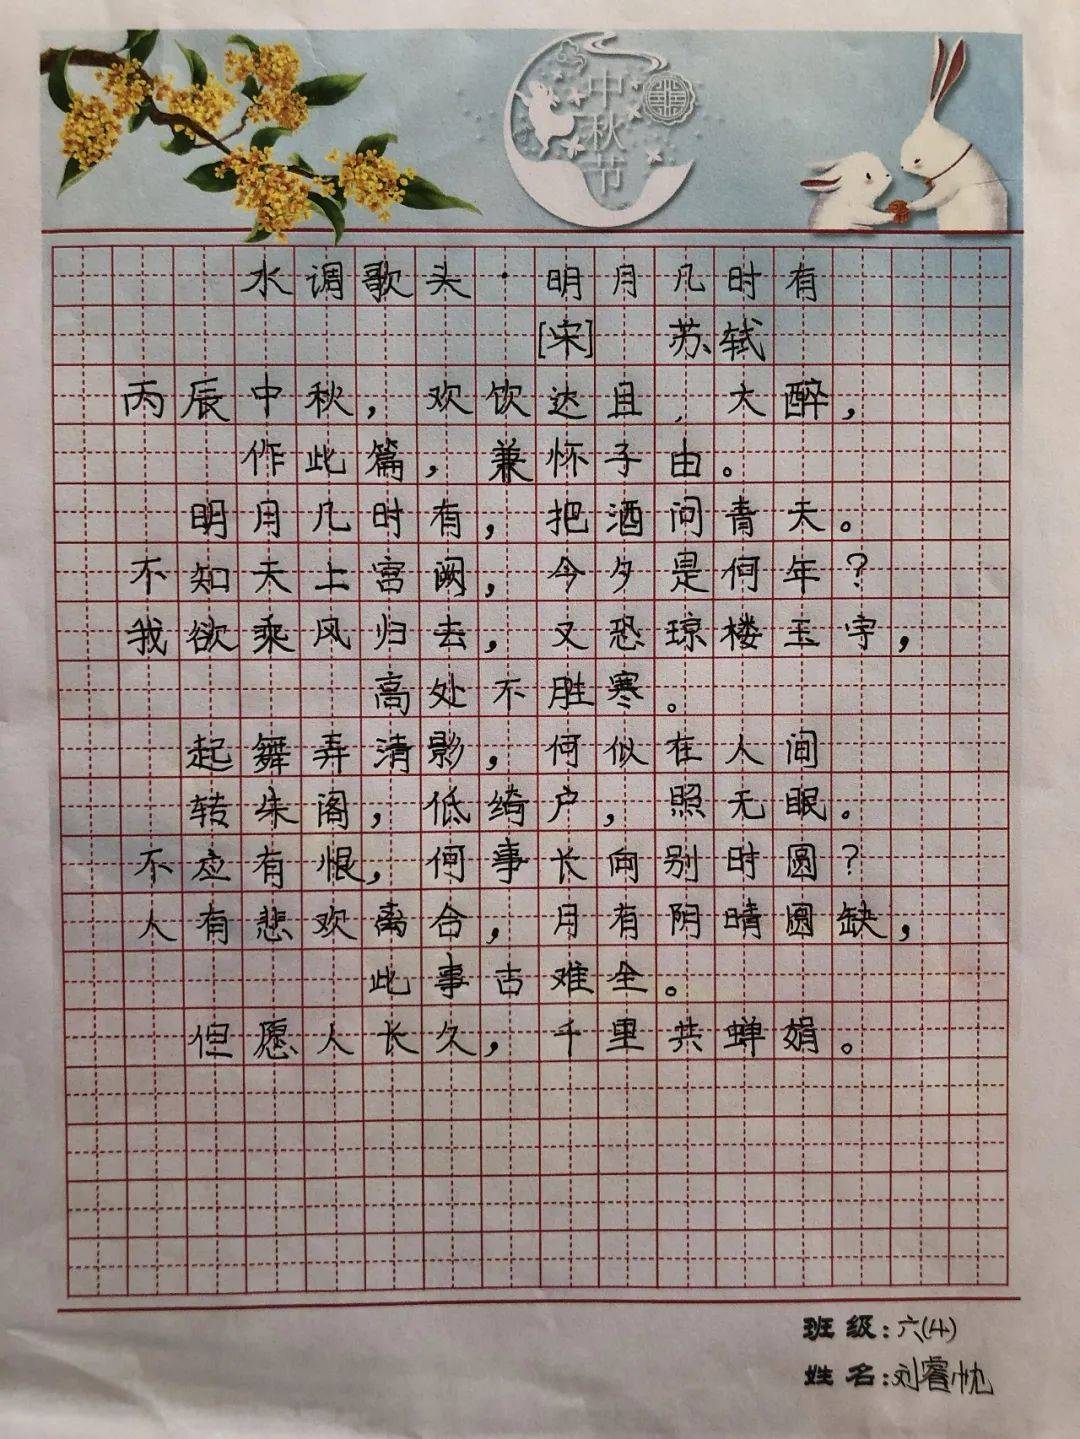 中秋节
水调歌头·明月几时有
[宋] 苏轼
丙辰中秋，欢饮达旦，大醉，
作此篇，兼怀子由。
明月几时有，把酒问青天。
不知天上宫阙，今夕是何年？
我欲乘风归去，又恐琼楼玉宇，
高处不胜寒。
起舞弄清影，何似在人间
转朱阁，低绮户，照无眠。
不应有恨，何事长向别时圆？
人有悲欢离合，月有阴晴圆缺，
此事古难全。
但愿人长久，千里共蝉娟。
班级：六(4)
姓名：刘睿忱